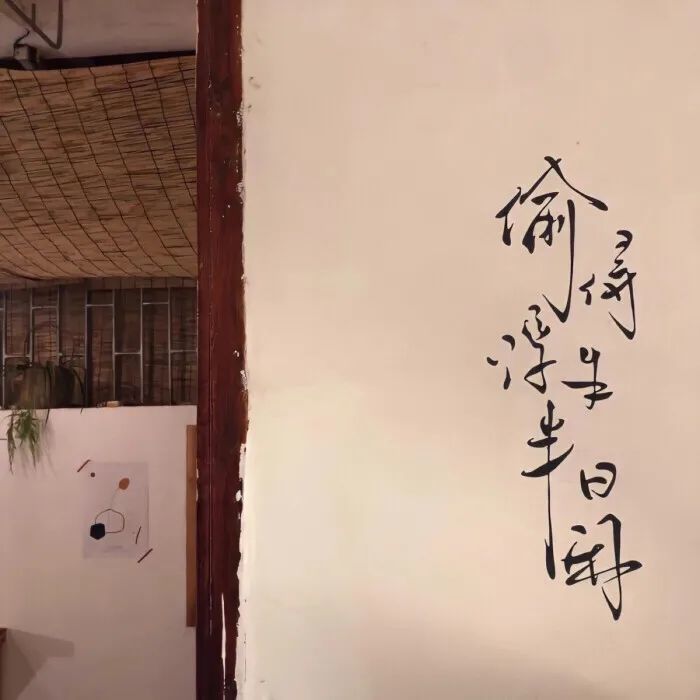 偷得浮生半日